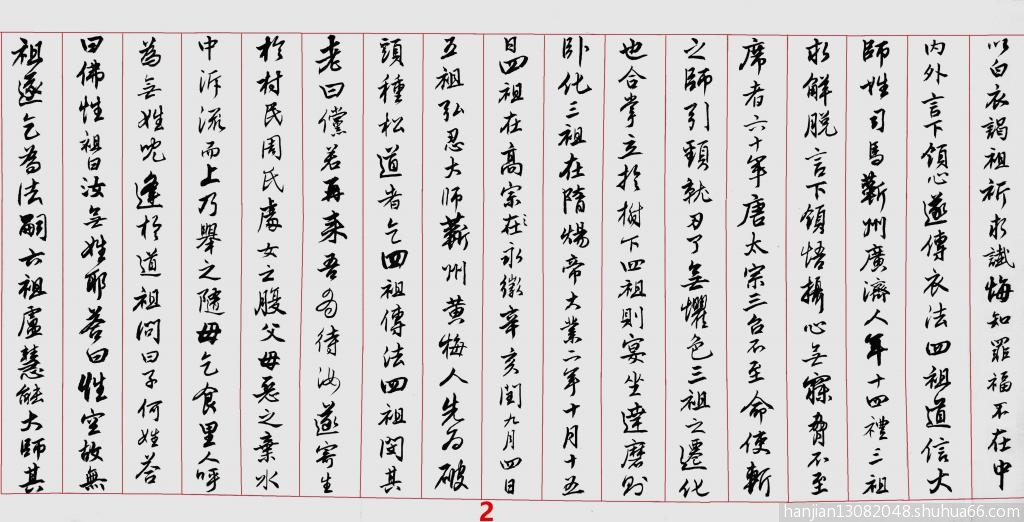 以白衣謁祖祈求識悔知罪福不在中
内外言下領心遂傳衣法四祖道信大
師姓司馬蘄州廣濟人年十四禮三祖
求解脫言下領悟攝心无寐脅不至
席者六十年唐太宗三召不至命使斬
之師引頸就刃了无懼色三祖之遷化
也合掌立於樹下四祖則宴坐達磨則
卧化三祖在隋煬帝大業二年十月十五
日四祖在高宗在永徽辛亥閏九月四日
五祖弘忍大師蘄州黄梅人先為破
頭種松道者乞四祖傳法四祖閔其
老曰儻若再来吾為待汝遂寄生
於村民周氏處女之腹父母惡之棄水
中泝流而上乃舉之隨母乞食里人呼
為无姓兒逢於道祖問曰子何姓答
曰佛性祖曰汝无姓耶答曰性空故無
祖遂乞為法嗣六祖盧慧能大師其
2
hanjian13082048.shuhua66.com